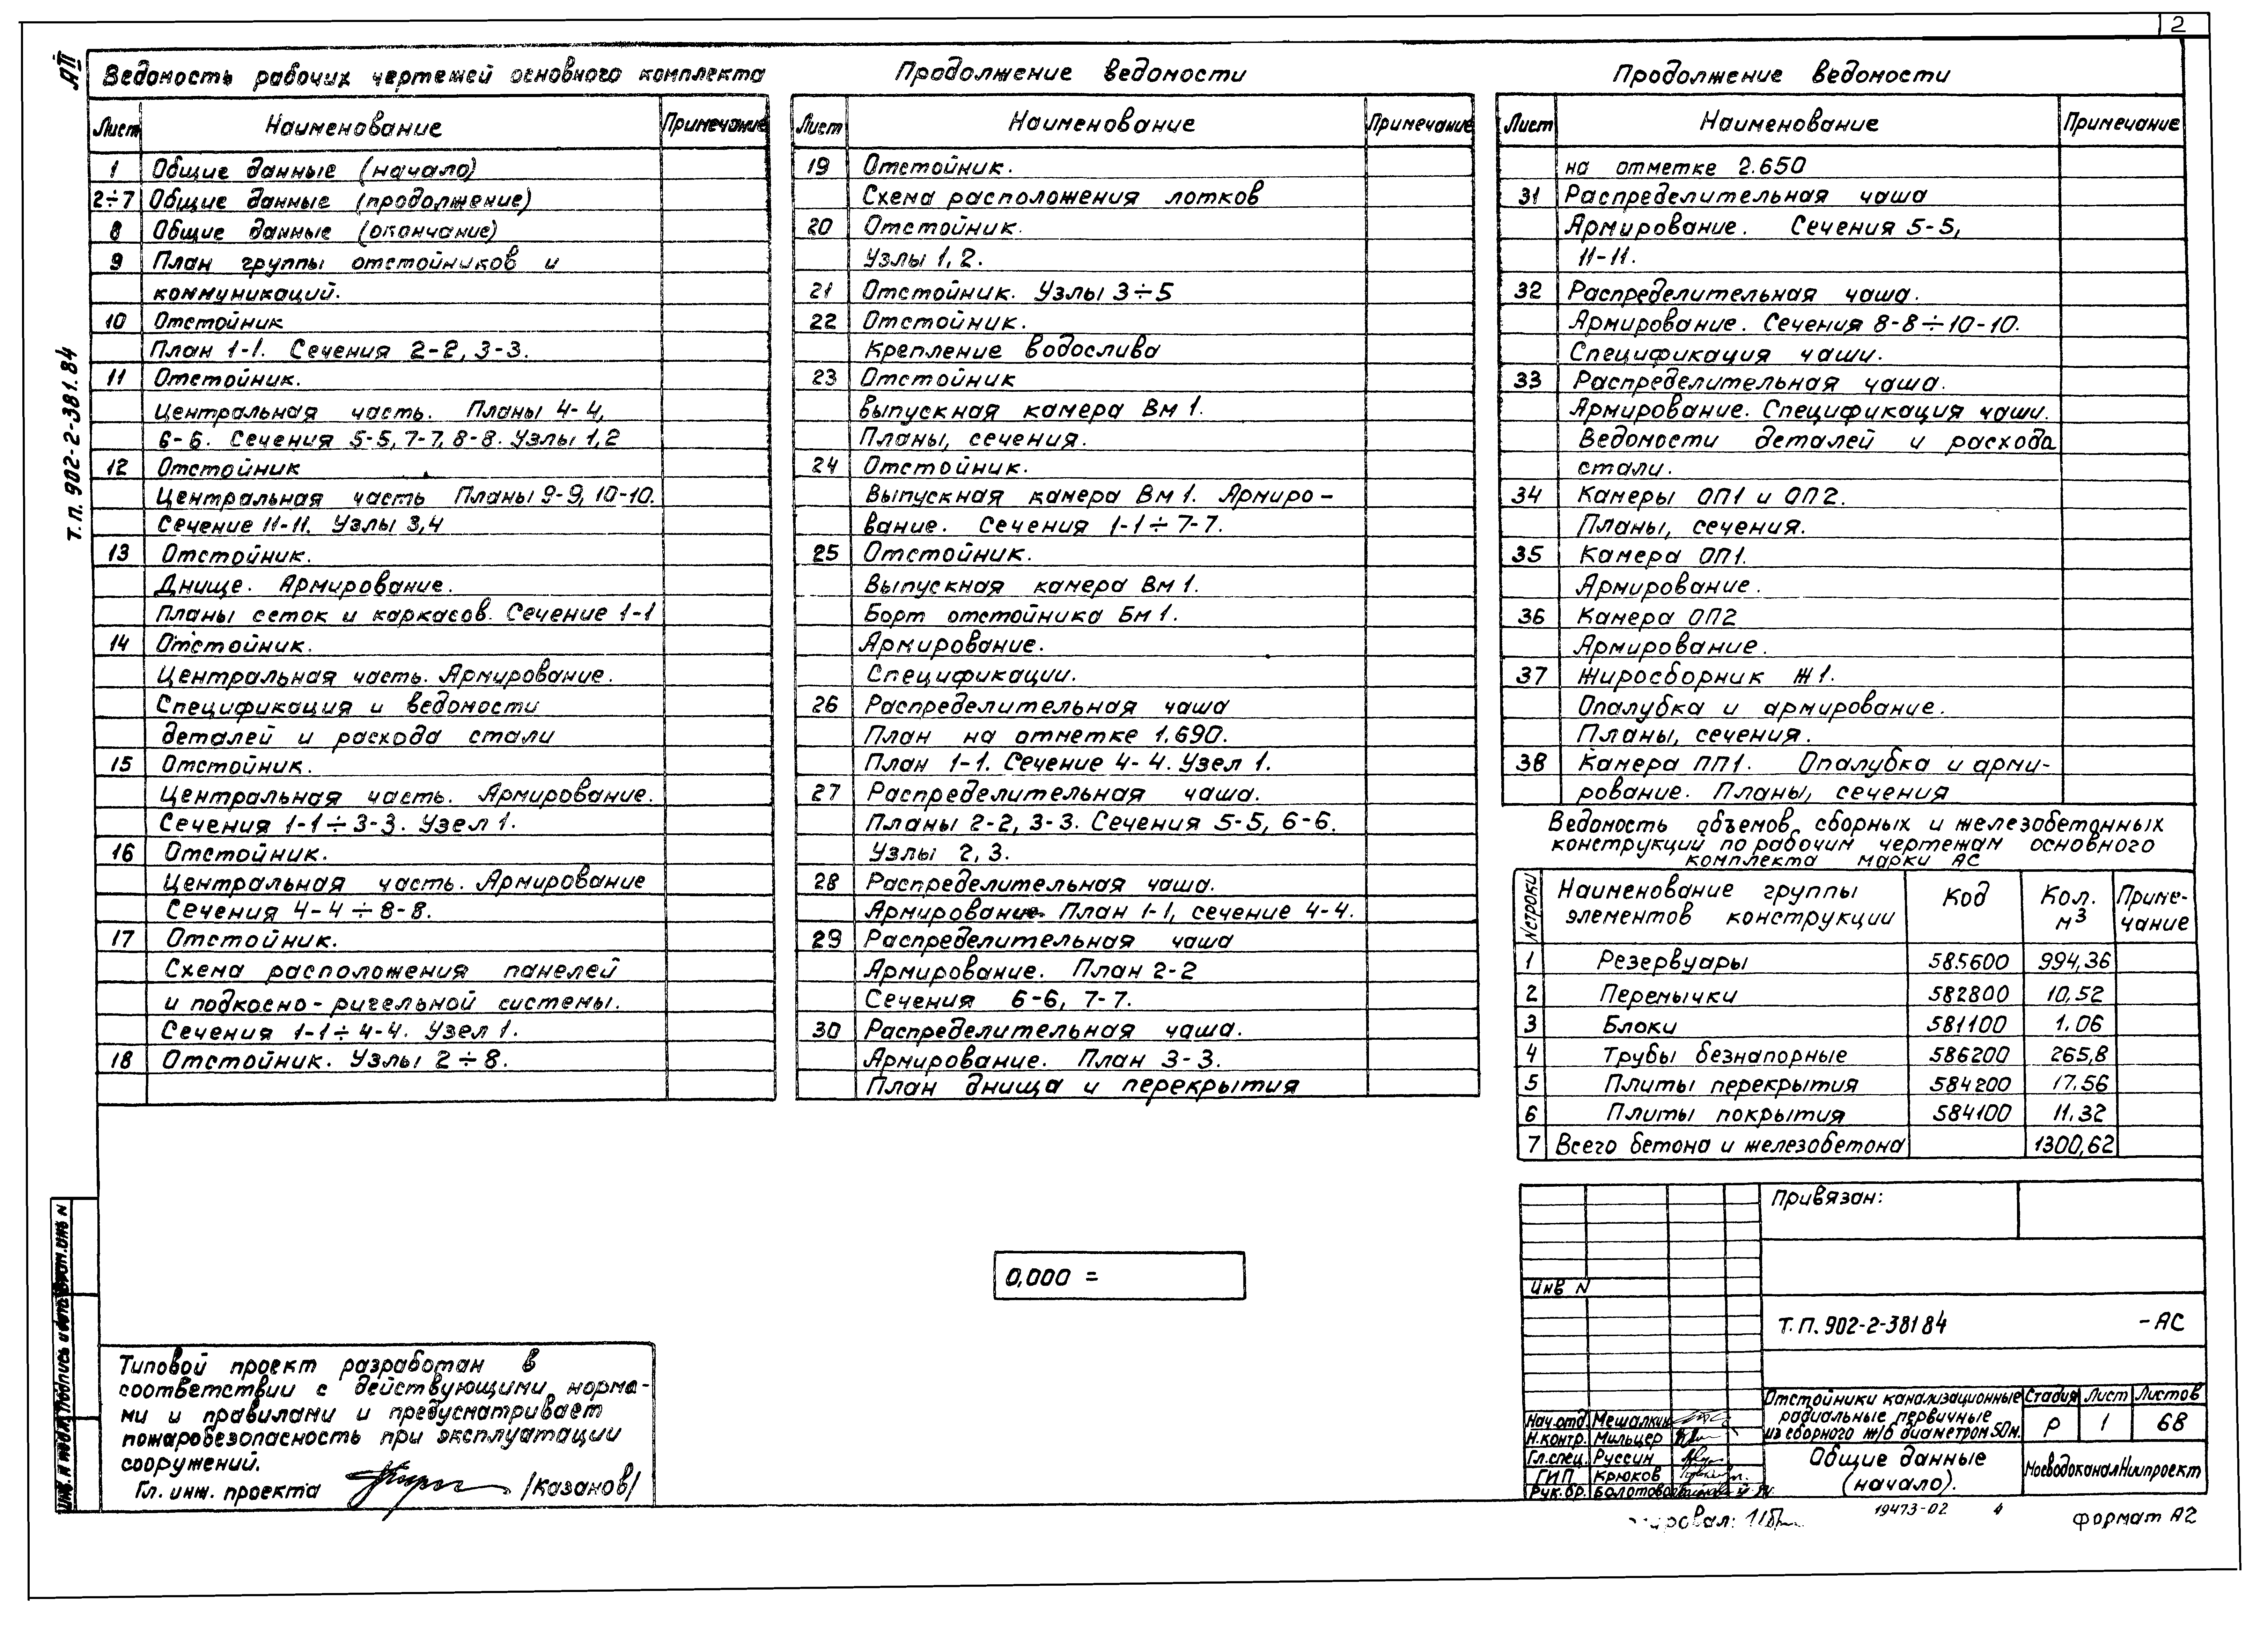 2
АII
Т.П. 902-2-381.84
Ведомость рабочих чертежей основного комплекта
Лист Наименование Примечание
1 Общие данные (начало)
2÷7 Общие данные (продолжение)
8 Общие данные (окончание)
9 План группы отстойников и
коммуникаций.
10 Отстойник
План 1-1. Сечения 2-2, 3-3.
11 Отстойник.
Центральная часть. Планы 4-4,
6-6. Сечения 5-5, 7-7, 8-8. Узлы 1,2
12 Отстойник
Центральная часть Планы 9-9, 10-10.
Сечение 11-11. Узлы 3,4
13 Отстойник.
Днище. Армирование.
Планы сеток и каркасов. Сечение 1-1
14 Отстойник.
Центральная часть. Армирование.
Спецификация и ведомости
деталей и расхода стали
15 Отстойник.
Центральная часть. Армирование.
Сечения 1-1÷3-3. Узел 1.
16 Отстойник.
Центральная часть. Армирование
Сечения 4-4÷8-8.
17 Отстойник.
Схема расположения панелей
и подкосно-ригельной системы.
Сечения 1-1÷4-4. Узел 1.
18 Отстойник. Узлы 2÷8.
Продолжение ведомости
Лист Наименование Примечание
19 Отстойник.
Схема расположения лотков
20 Отстойник.
Узлы 1, 2.
21 Отстойник. Узлы 3÷5
22 Отстойник.
Крепление водослива
23 Отстойник
выпускная камера Вм 1.
Планы, сечения.
24 Отстойник.
Выпускная камера Вм 1. Армиро-
вание. Сечения 1-1÷7-7.
25 Отстойник.
Выпускная камера Вм 1.
Борт отстойника Бм 1.
Армирование.
Спецификации.
26 Распределительная чаша
План на отметке 1.690.
План 1-1. Сечение 4-4. Узел 1.
27 Распределительная чаша.
Планы 2-2, 3-3. Сечения 5-5, 6-6.
Узлы 2, 3.
28 Распределительная чаша.
Армирование. План 1-1, сечение 4-4.
29 Распределительная чаша
Армирование. План 2-2
Сечения 6-6, 7-7.
30 Распределительная чаша.
Армирование. План 3-3.
План днища и перекрытия
Продолжение ведомости
Лист Наименование Примечание
на отметке 2.650
31 Распределительная чаша
Армирование. Сечения 5-5,
11-11.
32 Распределительная чаша.
Армирование. Сечения 8-8÷10-10.
Спецификация чаши.
33 Распределительная чаша.
Армирование. Спецификация чаши.
Ведомости деталей и расхода
стали.
34 Камеры ОП1 и ОП2.
Планы, сечения.
35 Камера ОП1.
Армирование.
36 Камера ОП2
Армирование.
37 Жиросборник Ж1.
Опалубка и армирование.
Планы, сечения.
38 Камера ПП1. Опалубка и арми-
рование. Планы, сечения
Ведомость объемов сборных и железобетонных
конструкций по рабочим чертежам основного
комплекта марки АС
N строки Наименование группы элементов конструкции Код Кол. м³ Приме-чание
1 Резервуары 585600 994,36
2 Перемычки 582800 10,52
3 Блоки 581100 1.06
4 Трубы безнапорные 586200 265,8
5 Плиты перекрытия 584200 17.56
6 Плиты покрытия 584100 11.32
7 Всего бетона и железобетона 1300,62
0,000 =
Типовой проект разработан в
соответствии с действующими норма-
ми и правилами и предусматривает
пожаробезопасность при эксплуатации
сооружений.
Гл. инж. проекта /Казанов/
Инв. N подл. Подпись и дата Взам. инв N
Привязан:
Инв N
Т.П. 902-2-381 84 -АС
Нач.отд. Мешалкин
Н.контр. Мильцер
Гл.спец. Руссин
ГИП Крюков
Рук.бр. Болотова
Отстойники канализационные
радиальные первичные
из сборного ж/б диаметром 50м.
Стадия Лист Листов
Р 1 68
Общие данные
(начало).
МосводоканалНиипроект
19473-02 4
формат А2